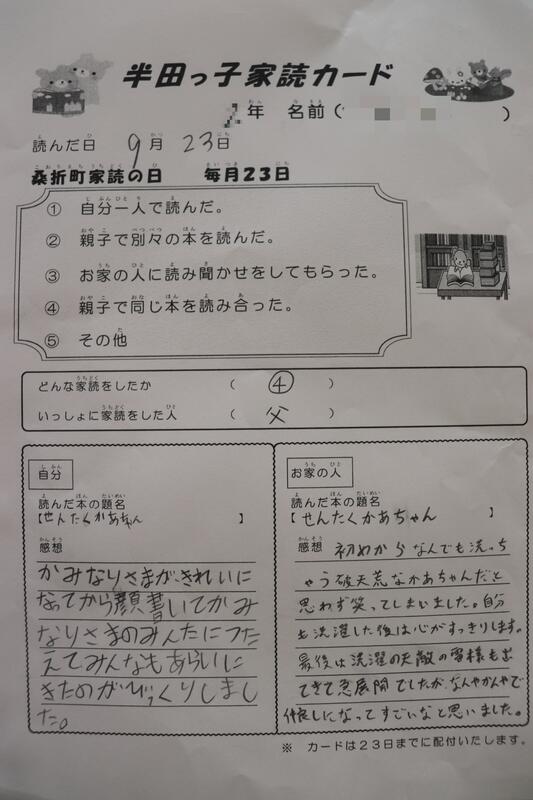 半田っ子家読カード
2年 名前( )
読んだ日 9月 23日
桑折町家読の日 毎月23日
① 自分一人で読んだ。
② 親子で別々の本を読んだ。
③ お家の人に読み聞かせをしてもらった。
④ 親子で同じ本を読み合った。
⑤ その他
どんな家読をしたか ( ④ )
いっしょに家読をした人 ( 父 )
自分
読んだ本の題名
【せんたくかあちゃん 】
感想
かみなりさまがきれいに
なってから顔書いてかみ
なりさまのみんたにつた
えてみんなもあらいに
きたのがびっくりしまし
た。
お家の人
読んだ本の題名
【せんたくかあちゃん 】
感想 初めからなんでも洗っち
ゃう破天荒なかあちゃんだと
思わず笑ってしまいました。自分
も洗濯した後は心がすっきりします。
最後は洗濯の天敵の雷様も出
てきて急展開でしたが、なんやかんやで
仲良しになってすごいなと思いました。
※ カードは23日までに配付いたします。